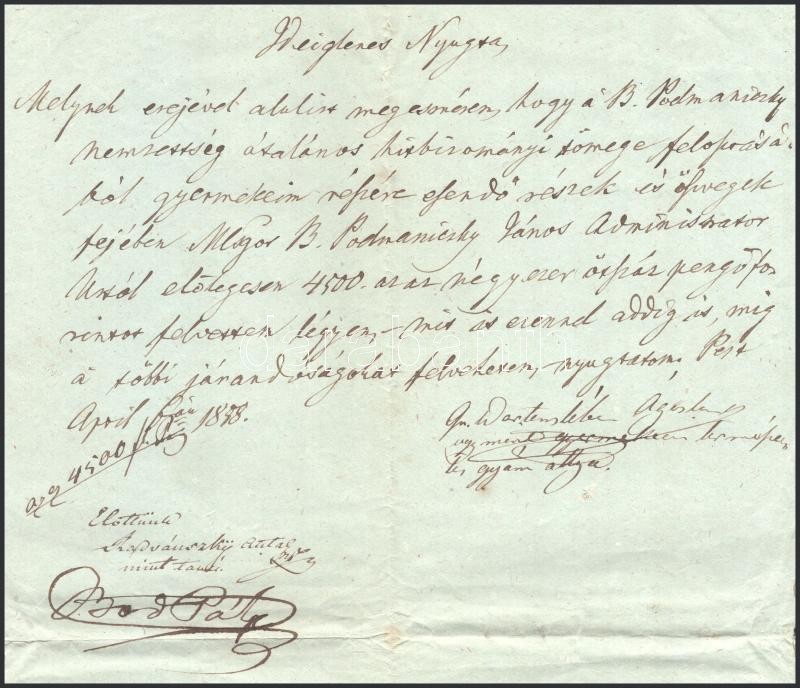 Ideiglenes Nyugta,
Melynek erejével alulirt megesmérem, hogy á B. Podmaniczky
nemzettség átalános hitbizományi tömege feloszlásá-
ból gyermekeim részére esendő részek is öszvegek
fejében Mlgos B. Podmaniczky János Administrator
Urtól előlegesen 4500. az az négy ezer ötszáz pengő fo-
rintot felvettem légyen, – mit is ezennel addig is, mig
á többi járandóságokat felvehetem, nyugtatom. Pest
April 1848.
azaz 4500
Gr. Wartensleben Ágoston
ugy mint gyermekeim természe-
tes gyám attya.
Előttünk
Radvánszky Antal
mint tanú.
Bod Pál